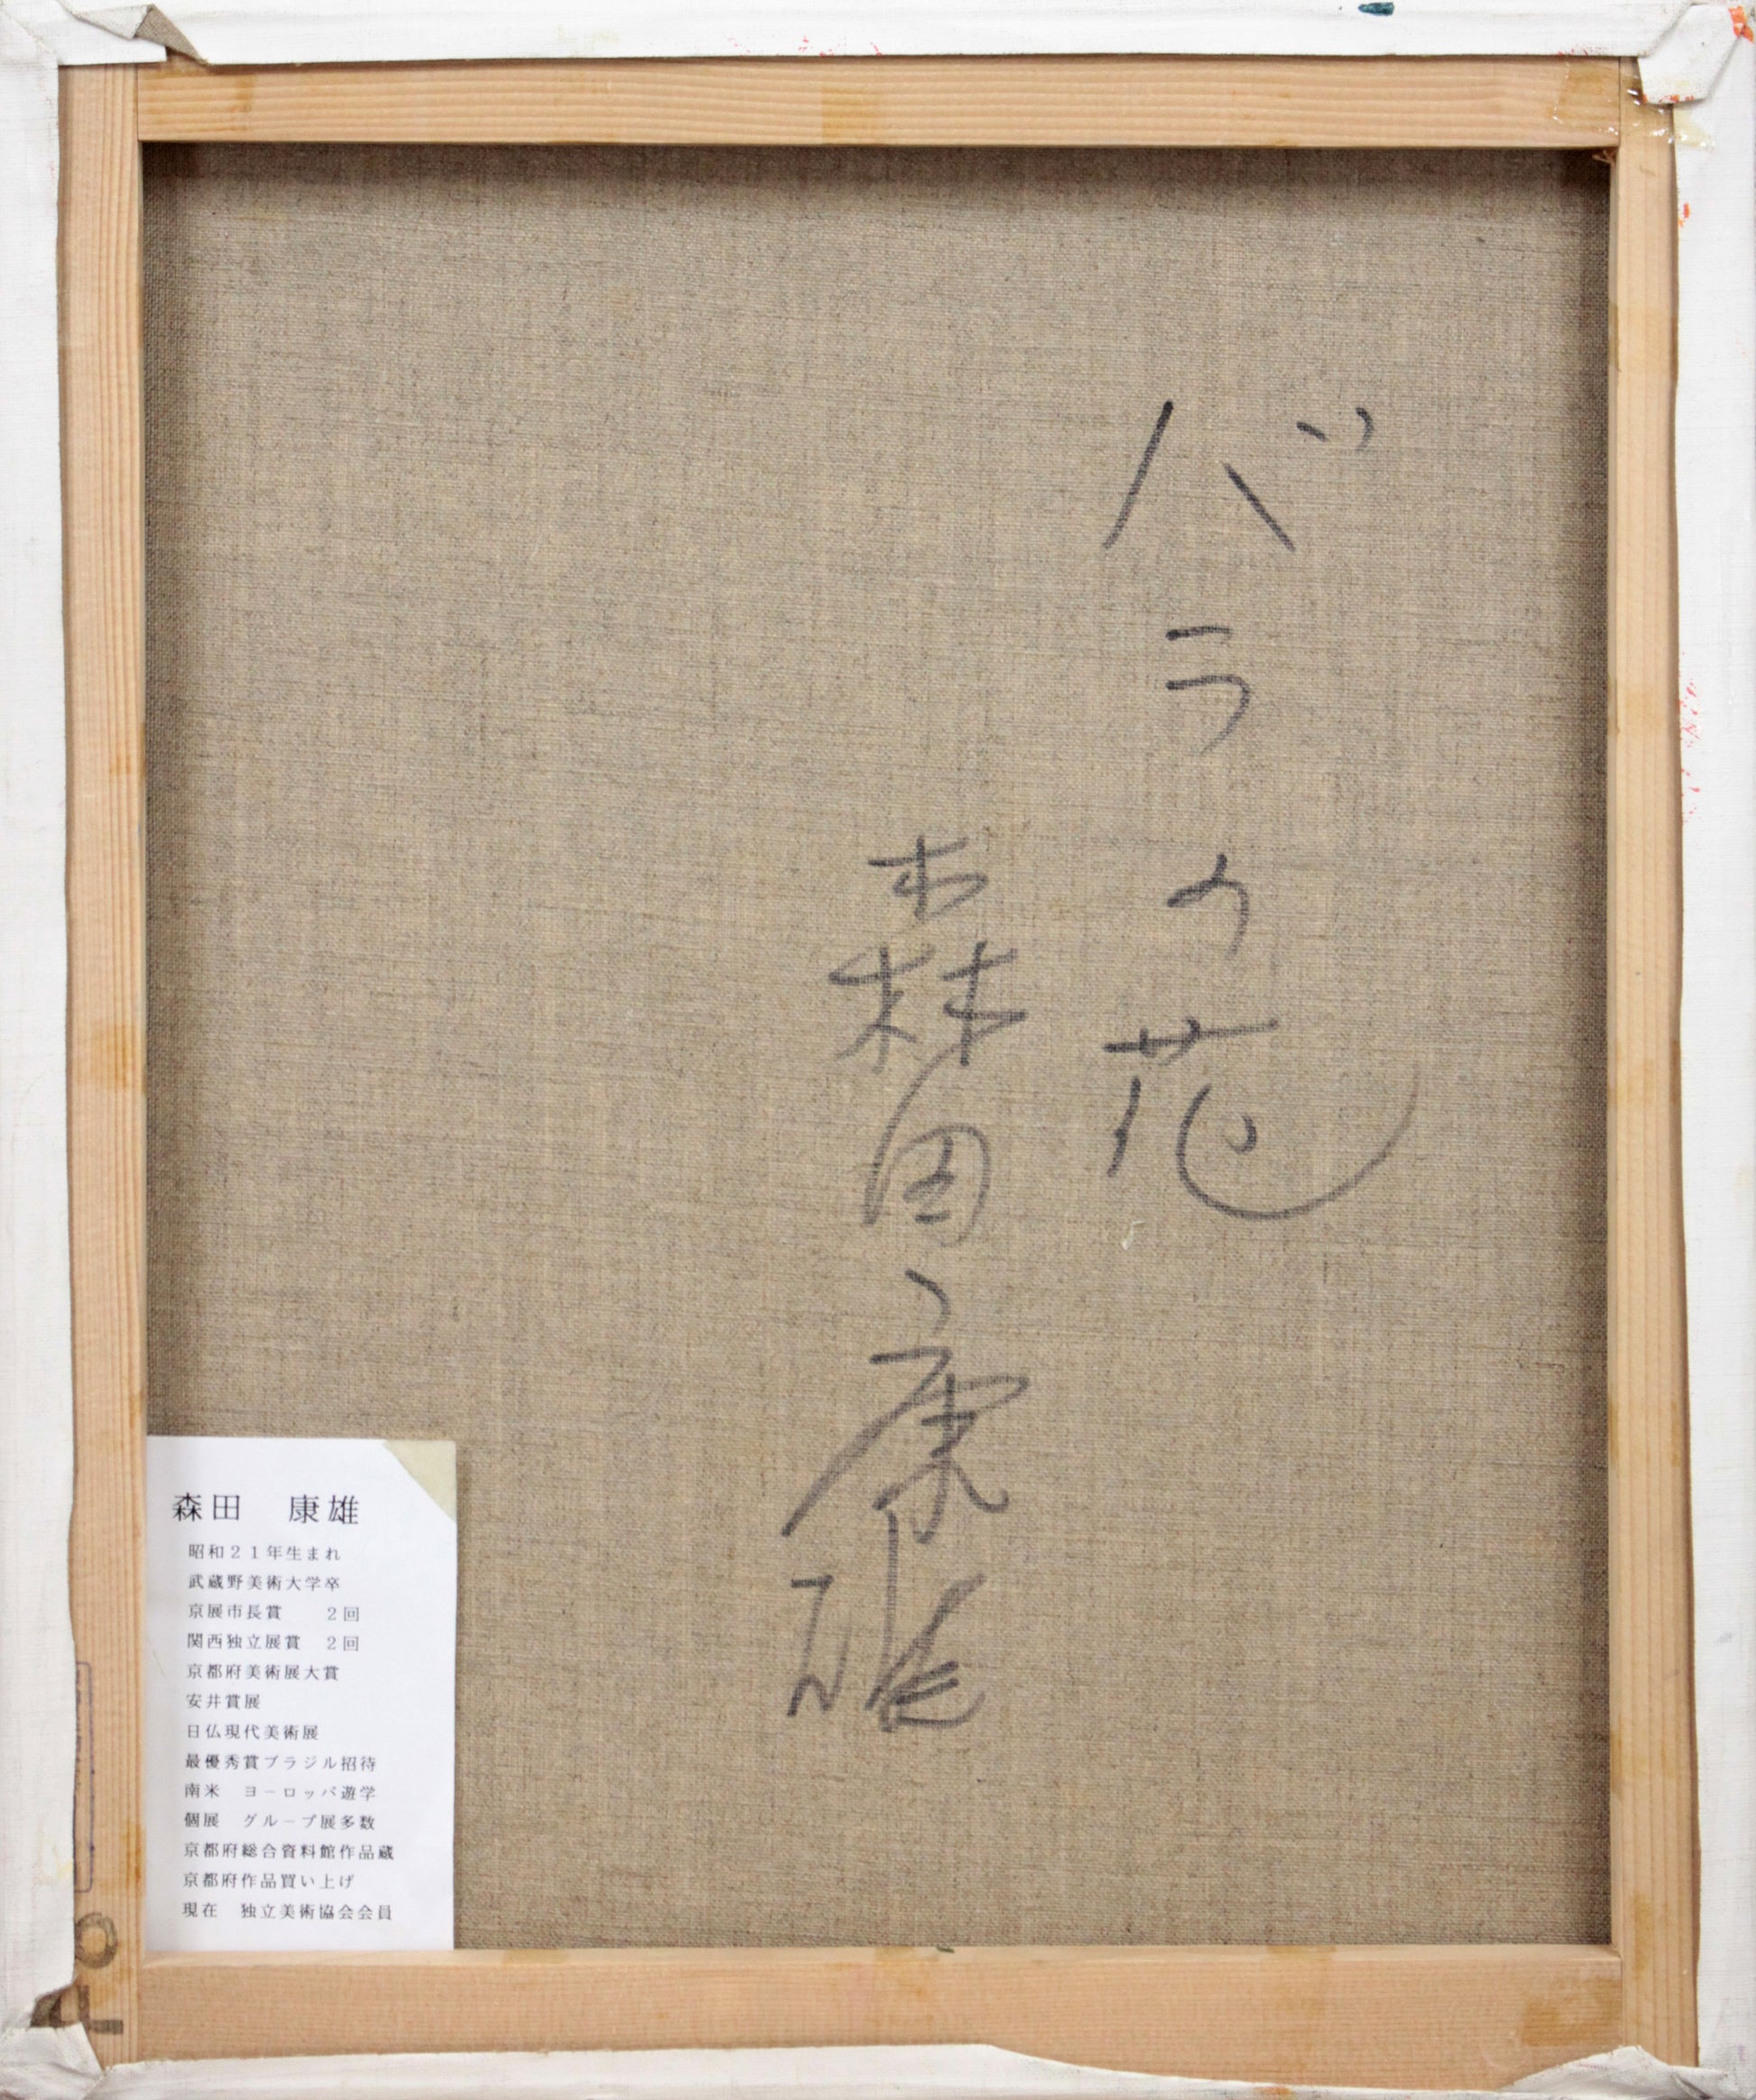 バラの花
森田康雄
森田　康雄
昭和２１年生まれ
武蔵野美術大学卒
京展市長賞　　２回
関西独立展賞　２回
京都府美術展大賞
安井賞展
日仏現代美術展
最優秀賞ブラジル招待
南米　ヨーロッパ遊学
個展　グループ展多数
京都府総合資料館作品蔵
京都府作品買い上げ
現在　独立美術協会会員